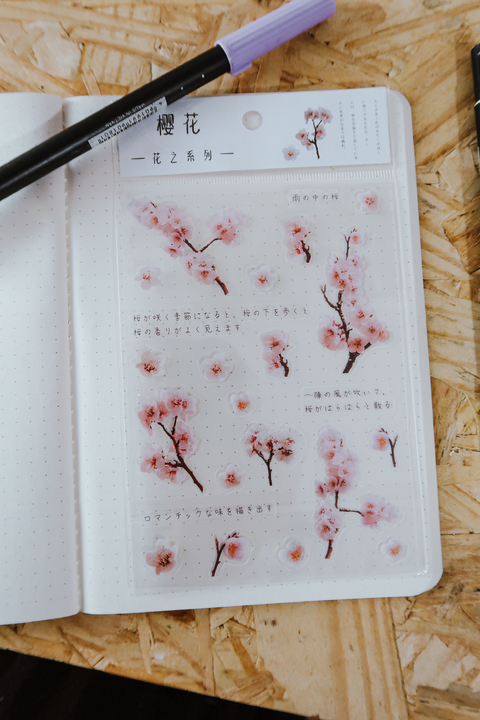 樱花
花之系列
雨の中の桜
桜が咲く季節になると、桜の下を歩くと
桜の香りがよく見えます
一陣の風が吹いて、
桜がはらはらと散る
ロマンチックな味を描き出す